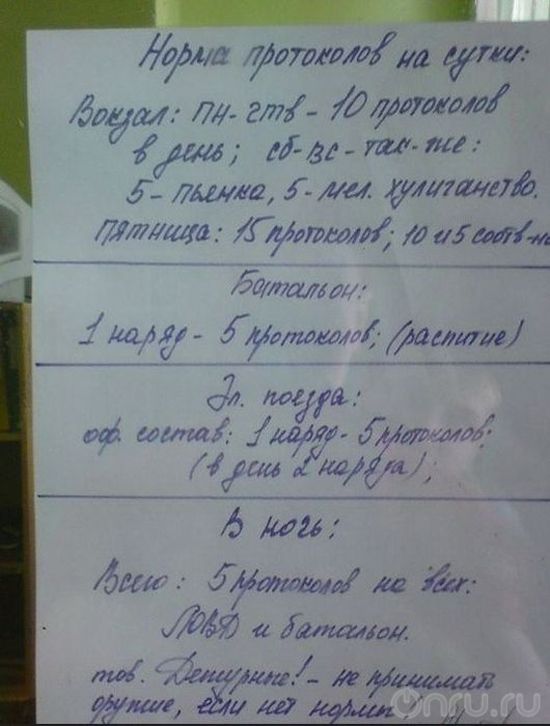 Норма протоколов на сутки:
Вокзал: ПН-ЧТВ - 10 протоколов
в день; сб-вс-так-же:
5 - пьянка, 5 - мел. хулиганство.
Пятница: 15 протоколов; 10 и 5 соотв-но
Батальон:
1 наряд - 5 протоколов; (распитие)
Эл. поезда:
оф. состав: 1 наряд - 5 протоколов;
(в день 2 наряда);
В ночь:
Всего: 5 протоколов на всех:
ЛОВД и батальон.
тов. Дежурные! - не принимать
оружие, если нет нормы
onru.ru